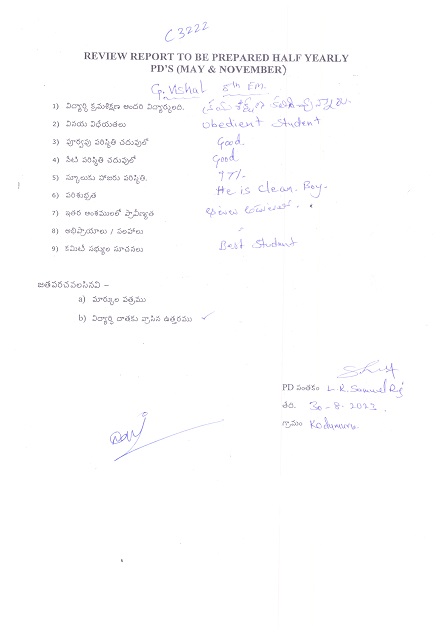 C3222
REVIEW REPORT TO BE PREPARED HALF YEARLY
PD'S (MAY & NOVEMBER)
G. Vishal 8th EM.
1) విద్యార్థి క్రమశిక్షణ అందరి విద్యార్థులది.
2) వినయ విధేయతలు obedient Student
3) పూర్వపు పరిస్థితి చదువులో Good
4) నేటి పరిస్థితి చదువులో Good
5) స్కూలుకు హాజరు పరిస్థితి. 97%
6) పరిశుభ్రత He is Clean. Boy.
7) ఇతర అంశములలో ప్రావీణ్యత
8) అభిప్రాయాలు / సలహాలు
9) కమిటీ సభ్యుల సూచనలు Best Student
జతపరచవలసినవి –
a) మార్కుల పత్రము
b) విద్యార్థి దాతకు వ్రాసిన ఉత్తరము ✓
PD సంతకం L. R. Samuel Raj
తేది. 30-8-2023
గ్రామం Kodumuru